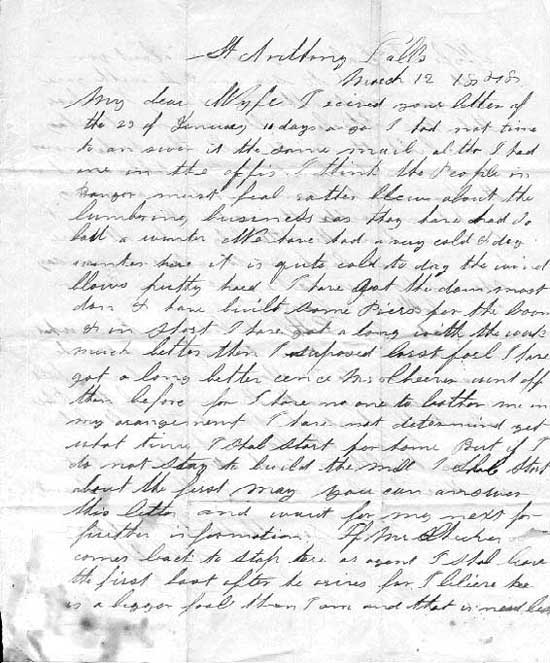 St Anthony Falls
March 12 1848
My dear Wyfe I receved your letter of
the 23 of January 11 days a go I had not time
to answer it the same mail altho I had
one in the offis. I think the People in
Bangor must feal rather blew about the
lumbering business as they have had so
bad a winter We have had a very cold & dry
winter here it is quite cold to day the wind
blows pretty hard I have got the dam most
don & have built some Piers for the boom
& in short I have got a long with the work
much better then I suposed last foel I have
got a long better cence Mr Cheever went off
then before for I have no one to bother me in
my arangement I have not determind yet
what time I shal start for home But if I
do not stay to build the mill I shal start
about the first may you can answer
this letter and wait for my next for
further information. If Mr Cheever
comes back to stop here as agent I shal leave
the first boat after he arives for I blieve he
is a bigger fool then I am and that is